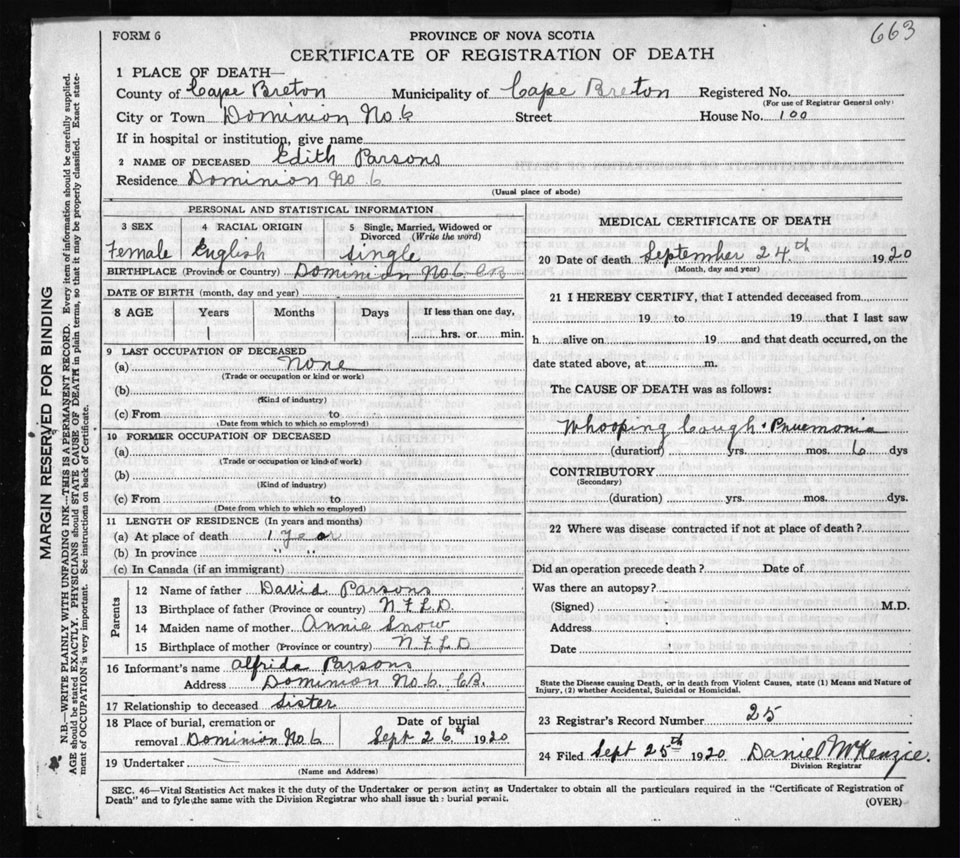 663
FORM 6
PROVINCE OF NOVA SCOTIA
CERTIFICATE OF REGISTRATION OF DEATH
1 PLACE OF DEATH—
County of Cape Breton Municipality of Cape Breton Registered No.
(For use of Registrar General only)
City or Town Dominion No. 6 Street House No. 100
If in hospital or institution, give name
2 NAME OF DECEASED Edith Parsons
Residence Dominion No. 6
(Usual place of abode)
PERSONAL AND STATISTICAL INFORMATION
3 SEX 4 RACIAL ORIGIN 5 Single, Married, Widowed or
Divorced (Write the word)
Female English Single
BIRTHPLACE (Province or Country) Dominion No. 6 CB
DATE OF BIRTH (month, day and year)
8 AGE Years Months Days If less than one day,
1 hrs. or min.
9 LAST OCCUPATION OF DECEASED
(a) None
(Trade or occupation or kind or work)
(b)
(Kind of industry)
(c) From to
(Date from which to which so employed)
10 FORMER OCCUPATION OF DECEASED
(a)
(Trade or occupation or kind of work)
(b)
(Kind of industry)
(c) From to
(Date from which to which so employed)
11 LENGTH OF RESIDENCE (In years and months)
(a) At place of death 1 year
(b) In province " "
(c) In Canada (if an immigrant)
Parents
12 Name of father David Parsons
13 Birthplace of father (Province or country) N.F.L.D.
14 Maiden name of mother Annie Snow
15 Birthplace of mother (Province or country) N.F.L.D
16 Informant's name Alfrida Parsons
Address Dominion No. 6 C.B.
17 Relationship to deceased Sister
18 Place of burial, cremation or Date of burial
removal Dominion No 6 Sept 26th 1920
19 Undertaker —
(Name and Address)
MEDICAL CERTIFICATE OF DEATH
20 Date of death September 24th 1920
(Month, day and year)
21 I HEREBY CERTIFY, that I attended deceased from
19 to 19 that I last saw
h alive on 19 and that death occurred, on the
date stated above, at m.
The CAUSE OF DEATH was as follows:
Whooping Cough & Pneumonia
(duration) yrs. mos. 6 dys
CONTRIBUTORY
(Secondary)
(duration) yrs. mos. dys.
22 Where was disease contracted if not at place of death?
Did an operation precede death? Date of
Was there an autopsy?
(Signed) M.D.
Address
Date
State the Disease causing Death, or in death from Violent Causes, state (1) Means and Nature of
Injury, (2) whether Accidental, Suicidal or Homicidal.
23 Registrar's Record Number 25
24 Filed Sept 25th 1920 Daniel McKenzie.
Division Registrar
SEC. 46—Vital Statistics Act makes it the duty of the Undertaker or person acting as Undertaker to obtain all the particulars required in the "Certificate of Registration of
Death" and to fyle the same with the Division Registrar who shall issue the burial permit.
(OVER)
MARGIN RESERVED FOR BINDING
N.B.—WRITE PLAINLY WITH UNFADING INK—THIS IS A PERMANENT RECORD. Every item of information should be carefully supplied.
AGE should be stated EXACTLY. PHYSICIANS should STATE CAUSE OF DEATH in plain terms, so that it may be properly classified. Exact state-
ment of OCCUPATION is very important. See instructions on back of Certificate.